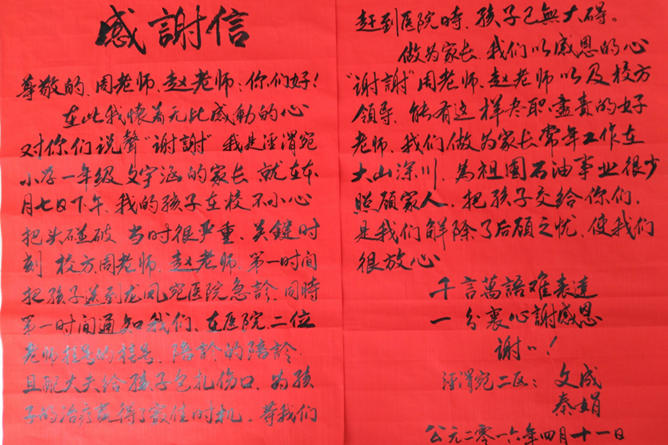 感謝信
尊敬的、周老师、赵老师：你们好！
在此我怀着无比感動的心
对你们说聲“谢謝”我是泾渭苑
小学一年级文宇涵的家长，就在本
月七日下午，我的孩子在校不小心
把头碰破，当时很严重，关鍵时
刻校方、周老师、赵老师，第一时间
把孩子送到龙凤苑医院急診，同時
第一时间通知我们、在医院，二位
老师挂号的挂号，陪診的陪診，
且配大夫给孩子包扎伤口，为孩
子的治疗赢得了最佳时机，等我们
赶到医院時，孩子已無大碍。
做为家长，我们以感恩的心
“谢謝”周老师、赵老师以及校方
领导，能有这样尽职尽責的好
老师，我们做为家长常年工作在
大山深川，為祖國石油事业很少
照顾家人，把孩子交给你们，
是我们解除了后顾之忧，使我们
很放心
千言萬語难表达
一分衷心謝感恩
谢谢！
泾渭苑二区：文成
秦娟
公元二零一六年四月十一日